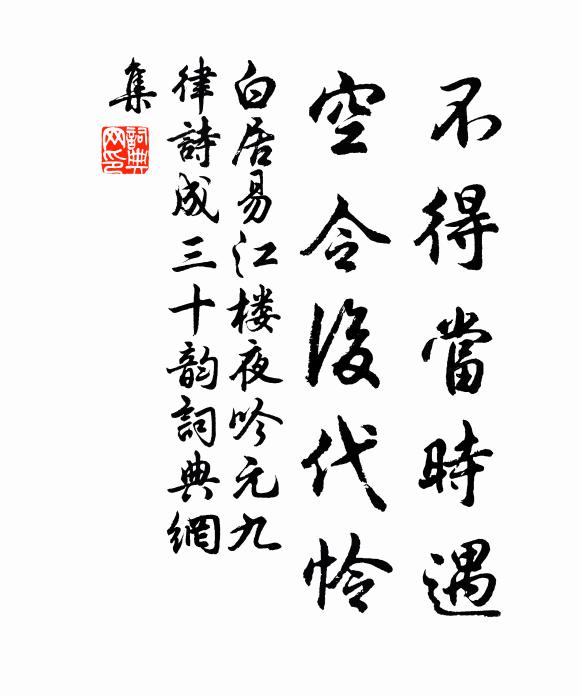 不得當時遇
空令後代怜
白居易江楼夜吟元九
律詩成三十韵詞典網
集
詞典網印